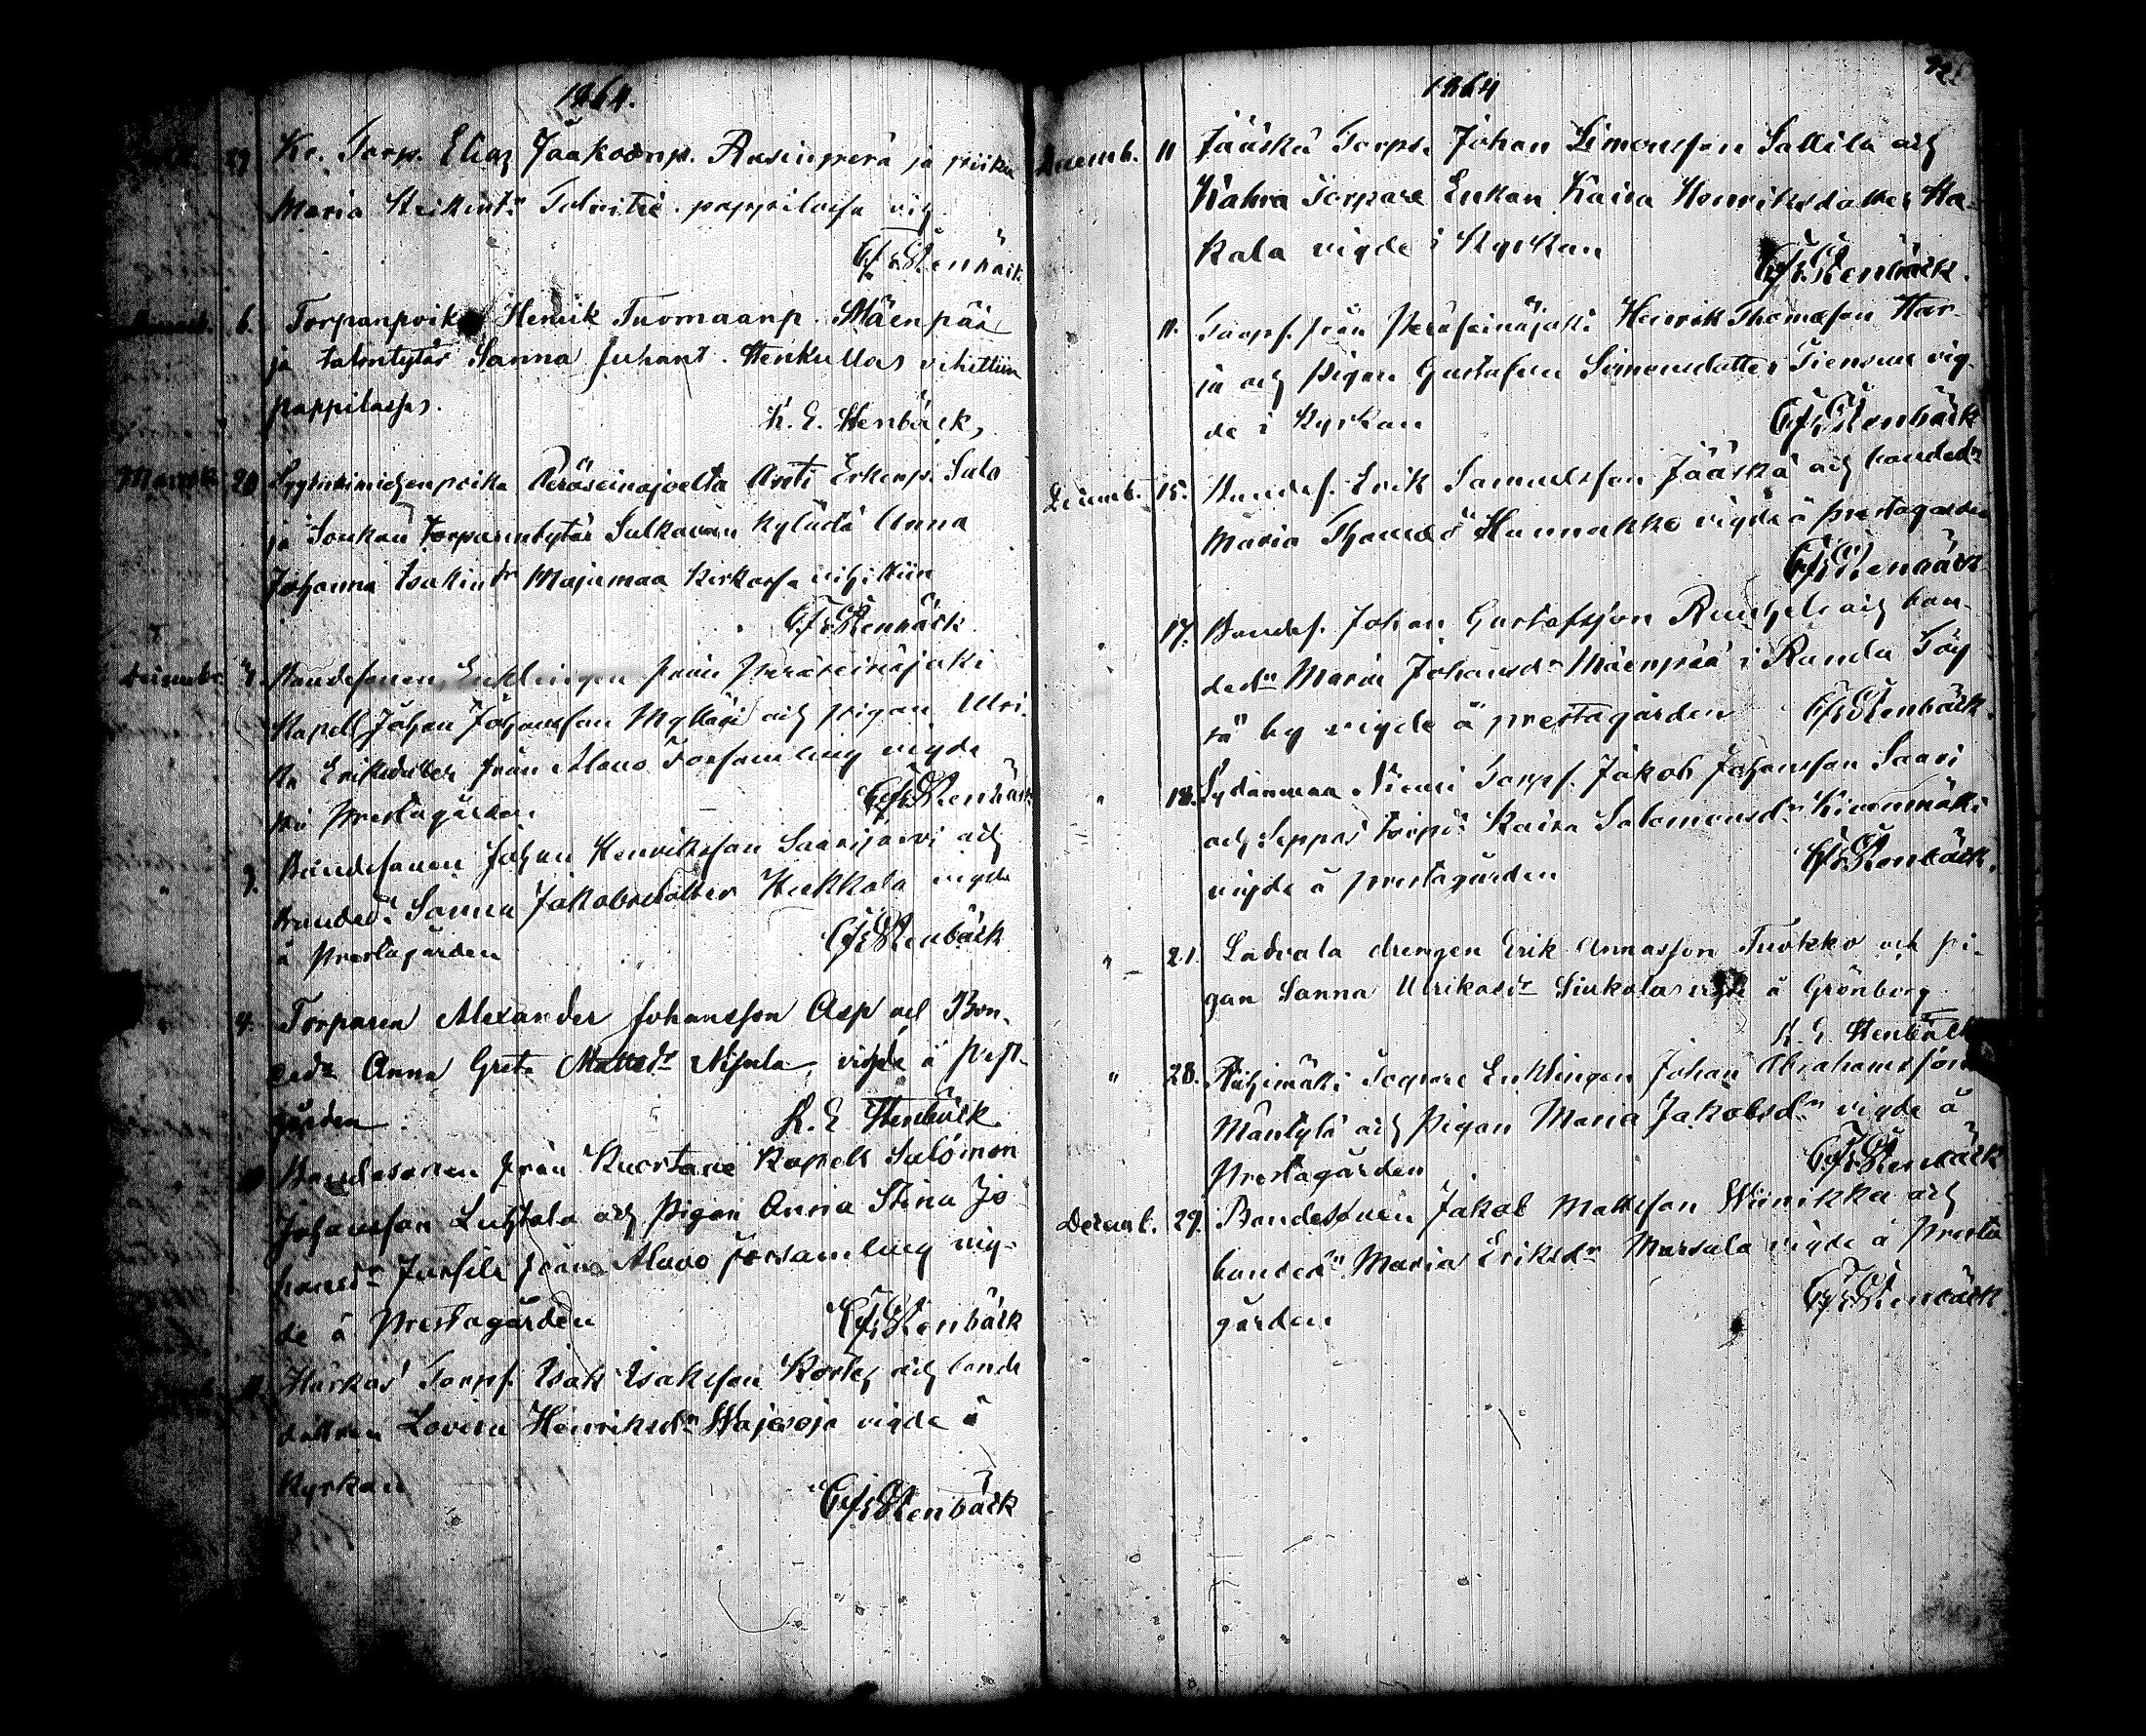 1864.
27 Kr. Torp. Elias Jaakonp. Rasinperä ja piika
Maria Heikint. pappilassa vih.
C F Stenbäck
6. Torpanpoik Henrik Tuomaanp. Mäenpää
ja talontytär Sanna Juhant. Henkullas vihittiin
pappilassa.
K. E. Stenbäck,
20 Peräseinäjoelta Antti Erkinp. Salo
ja Soukan torparintytär Sulkavan kylästä Anna
Johanna Isakintr Majamaa kirkossa vihittiin
C F Stenbäck
Decembr 4. Bondesonen Enklingen från Peräseinäjoki
Kapell Johan Johansson Myllari och pigan Ulri-
ka Eriksdotter från Alavo Församling vigde
på Prestagården
C F Stenbäck
" 9. Bondesonen Johan Henriksson Saarijärvi och
bonded. Sanna Jakobsdotter Hekkala vigde
å Prestagården
C F Stenbäck
" 4. Torparen Alexander Johansson Asp och Bon-
dedr Anna Greta Mattsdr Nisula, vigde å Prest-
gården.
K. E Stenbäck
Bondesonen från Kuortane Kapell Salomon
Johansson Luhtala och Pigan Anna Stina Jo
hansdr från Alavo församling vig-
de å Prestagården
C F Stenbäck
11. Härkös Torps. Isak Isaksson och bonde
dottren Lovisa Henriksdr Wajesoja vigde i
Kyrkan
C F Stenbäck
1864
Decemb. 11 Jääskä Torps. Johan Simonsson Sallila och
Torpare Enkan Kaisa Henriksdotter Ha-
kala vigde i Kyrkan
C F Stenbäck.
11. Torps. från Peräseinäjoki Henrik Thomasson Har-
ju och Pigan Gustafva Simonsdotter Tiensuu vig-
de i Kyrkan
C F Stenbäck
Decemb. 15. Bondes. Erik Samuelsson Jääskä och bondedr
Maria Thomasdr Hannukko vigde å prestagården
C F Stenbäck
" 17. Bondes. Johan Gustafsson och bon-
dedr Maria Johansdr Mäenpää i Randa Töy
sä by vigde å prestagården
C F Stenbäck.
" 18. Sydänmaa Niemi Torps. Jakob Johansson Saari
och Seppäs torpdr Kaisa Salomonsdr Kivenmäki
vigde å prestagården
C F Stenbäck.
" 21. Ladvala drengen Erik Annasson Tuokko och pi-
gan Sanna Ulrikasdr Sinkola vigde å Grönborg
K. E. Stenbäck
" 28. Riihimäki Torpare Enklingen Johan Abrahamsson
Mäntylä och Pigan Maria Jakobsdr vigde å
Prestagården
C F Stenbäck
Decemb. 29. Bondesonen Jakob Mattsson Wiinikka och
bondedr Maria Eriksdr Mursula vigde å Presta
gården
C F Stenbäck.